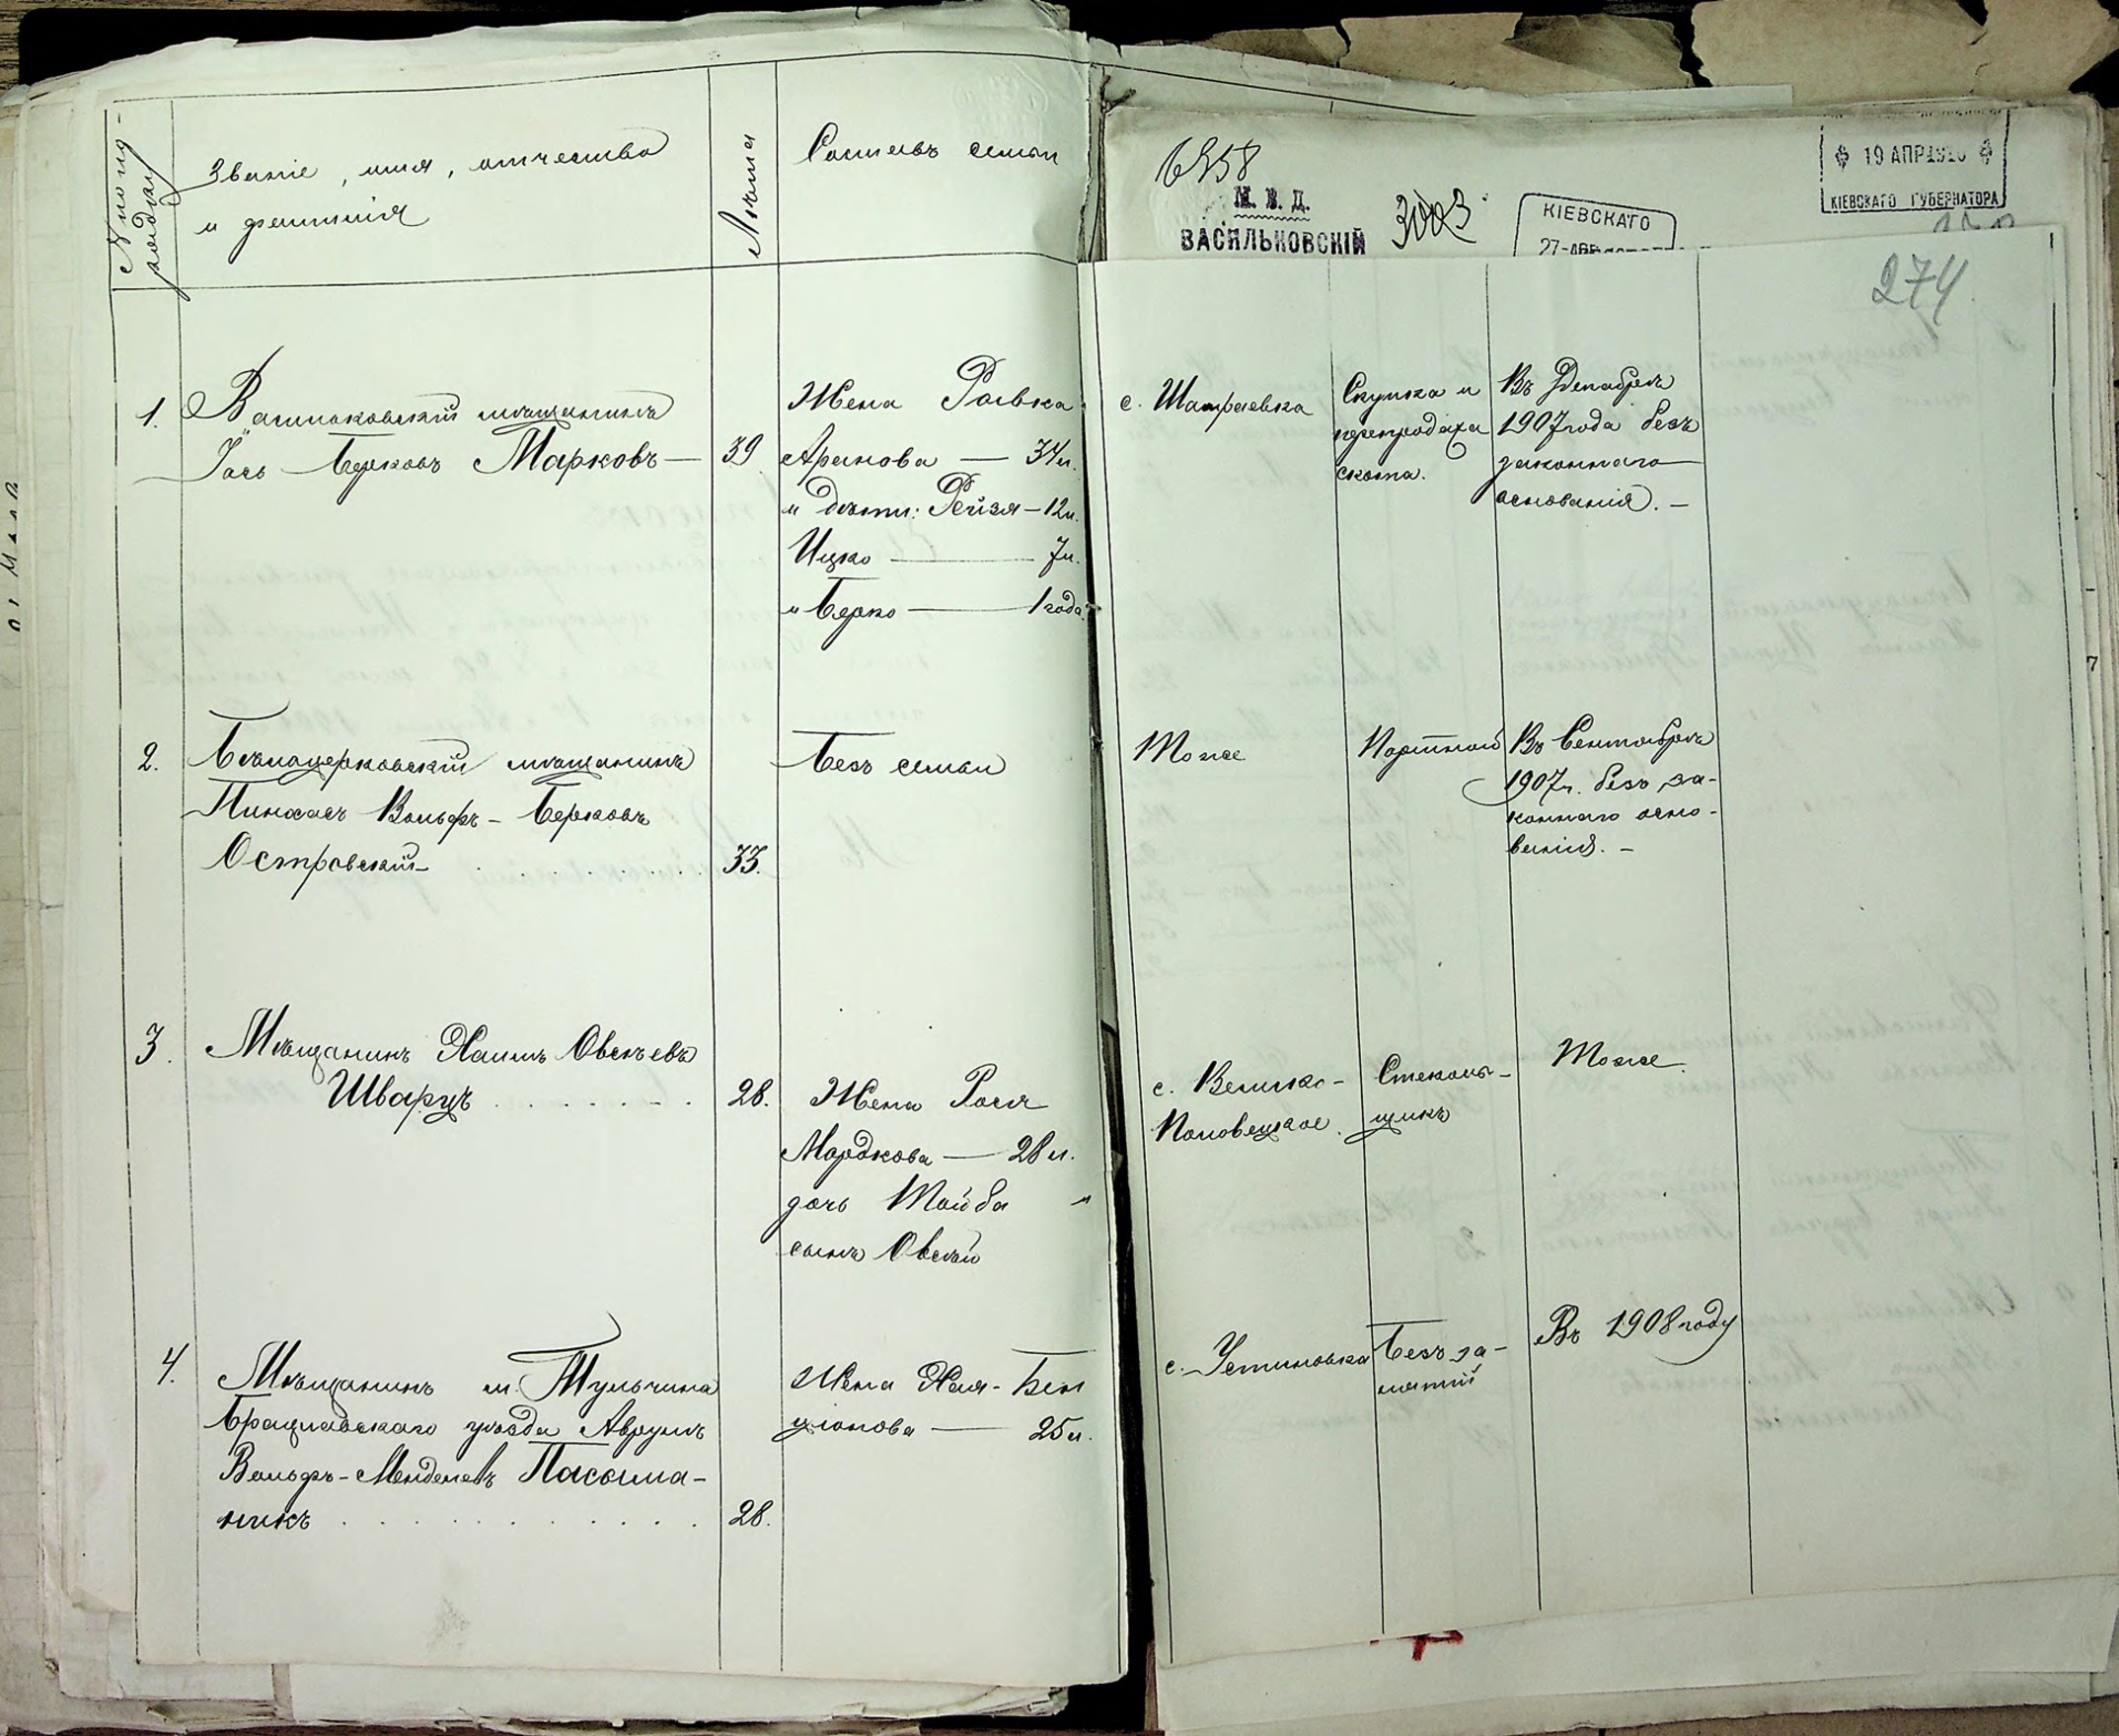 № по по-
рядку
Званіе, имя, отчество
и фамилія
Лѣта
Составъ семьи
6358
М. В. Д.
ВАСИЛЬКОВСКІЙ
3003
КІЕВСКАГО
27-АПР
19 АПР 1910
КІЕВСКАГО ГУБЕРНАТОРА
274
1.
мѣщанинъ
Іось Берковъ Марковъ —
39
Жена Ривка
Аронова — 34 л.
и дѣти: Рейзя — 12 л.
Ицко — 7 л.
и Берко — 1 года
с. Шамраевка
Скупка и
перепродажа
скота.
Въ Декабрѣ
1907 года безъ
законнаго
основанія. —
2.
Бѣлоцерковскій мѣщанинъ
Пинхасъ Вольфъ-Берковъ
Островскій
33.
Безъ семьи
Тоже
Портной
Въ Сентябрѣ
1907 г. безъ за-
коннаго осно-
ванія. —
3.
Мѣщанинъ Хаимъ Овсѣевъ
Шварцъ
28.
Жена Рося
Мордкова — 28 л.
дочь Тойба и
сынъ Овсѣй
с. Велико-
Половецкое.
Стеколь-
щикъ
Тоже.
4.
Мѣщанинъ м. Тульчина
Брацлавскаго уѣзда Аврумъ
Вольфъ-Менделевъ Пасома-
никъ
28.
Жена Хая-Бен
ціонова — 25 л.
с. Устиновка
Безъ за-
нятій
Въ 1908 году